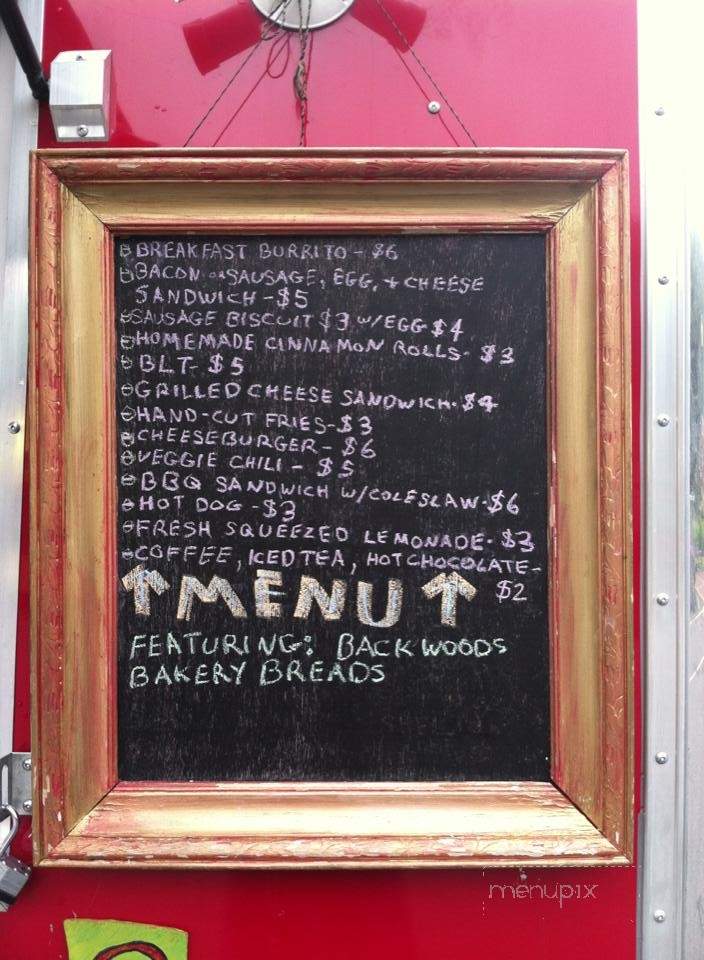 BREAKFAST BURRITO - $6
BACON OR SAUSAGE, EGG, + CHEESE
SANDWICH - $5
SAUSAGE BISCUIT $3 W/EGG $4
HOMEMADE CINNAMON ROLLS - $3
BLT - $5
GRILLED CHEESE SANDWICH - $4
HAND-CUT FRIES - $3
CHEESEBURGER - $6
VEGGIE CHILI - $5
BBQ SANDWICH W/COLESLAW - $6
HOT DOG - $3
FRESH SQUEEZED LEMONADE - $3
COFFEE, ICED TEA, HOT CHOCOLATE -
$2
↑ MENU ↑
FEATURING: BACKWOODS
BAKERY BREADS
menupix